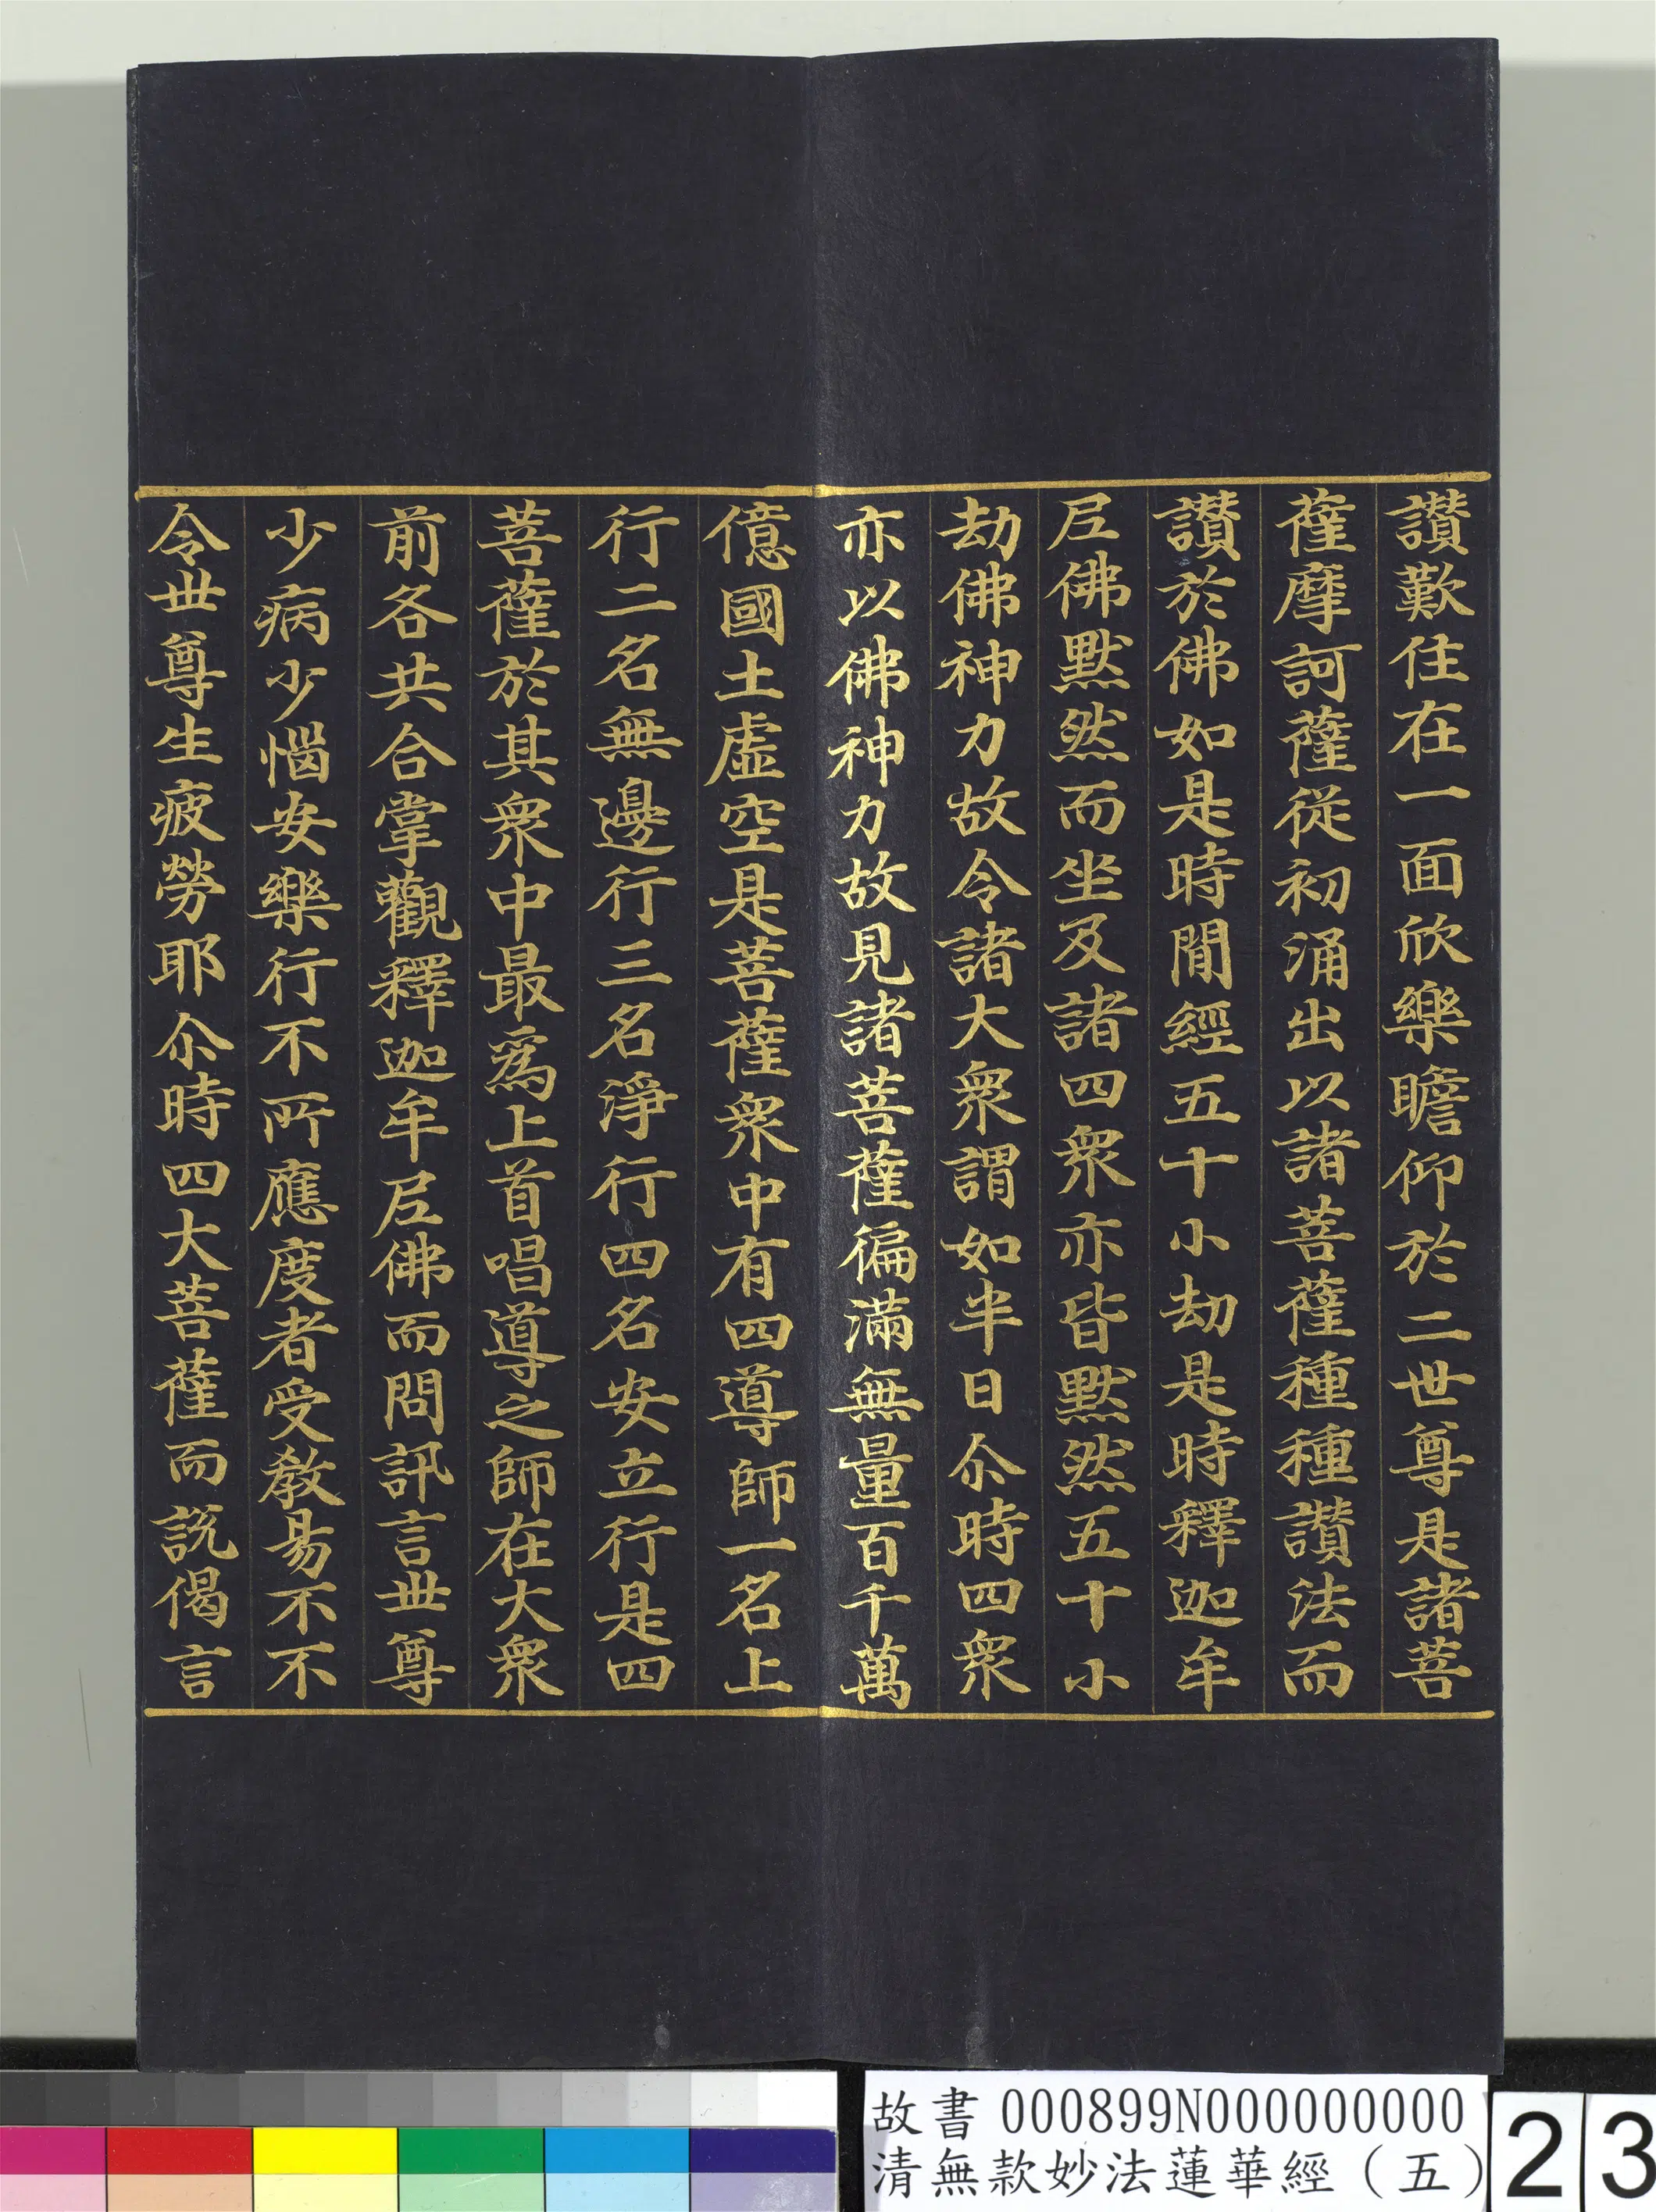 讚歎住在一面欣樂瞻仰於二世尊是諸菩
薩摩訶薩從初涌出以諸菩薩種種讚法而
讚於佛如是時閒經五十小劫是時釋迦牟
尼佛默然而坐及諸四衆亦皆默然五十小
劫佛神力故令諸大衆謂如半日尒時四衆
亦以佛神力故見諸菩薩徧滿無量百千萬
億國土虛空是菩薩衆中有四導師一名上
行二名無邊行三名淨行四名安立行是四
菩薩於其衆中最爲上首唱導之師在大衆
前各共合掌觀釋迦牟尼佛而問訊言世尊
少病少惱安樂行不所應度者受敎易不不
令世尊生疲勞耶尒時四大菩薩而說偈言
故書 000899N000000000
清無款妙法蓮華經（五）
23